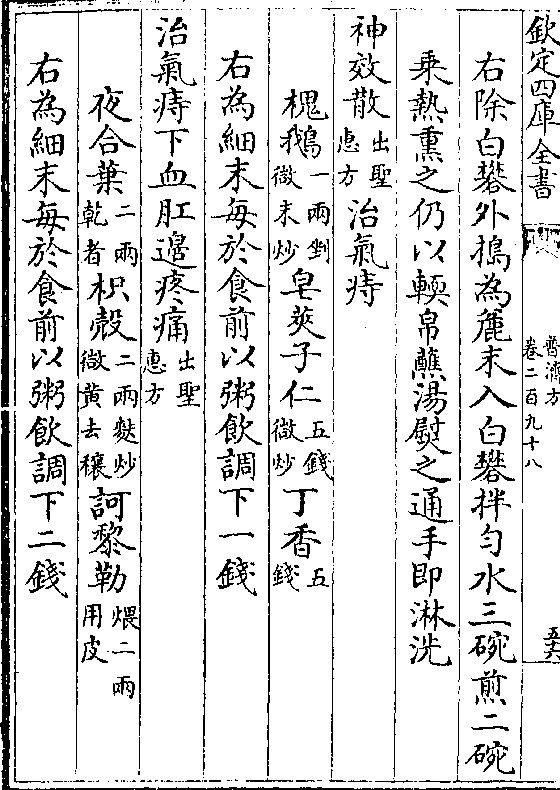 欽定四庫全書
普濟方
卷二百九十八
五六
右除白礬外搗為麄末入白礬拌勻水三碗煎二碗
乗熱熏之仍以輭帛蘸湯熨之通手即淋洗
神效散出聖惠方治氣痔
槐鵝一兩剉微末炒皂莢子仁五錢微炒丁香五錢
右為細末每於食前以粥飲調下一錢
治氣痔下血肛邊疼痛出聖惠方
夜合葉二兩乾者枳殼二兩麩炒微黄去穰訶黎勒煨二兩用皮
右為細末每於食前以粥飲調下二錢